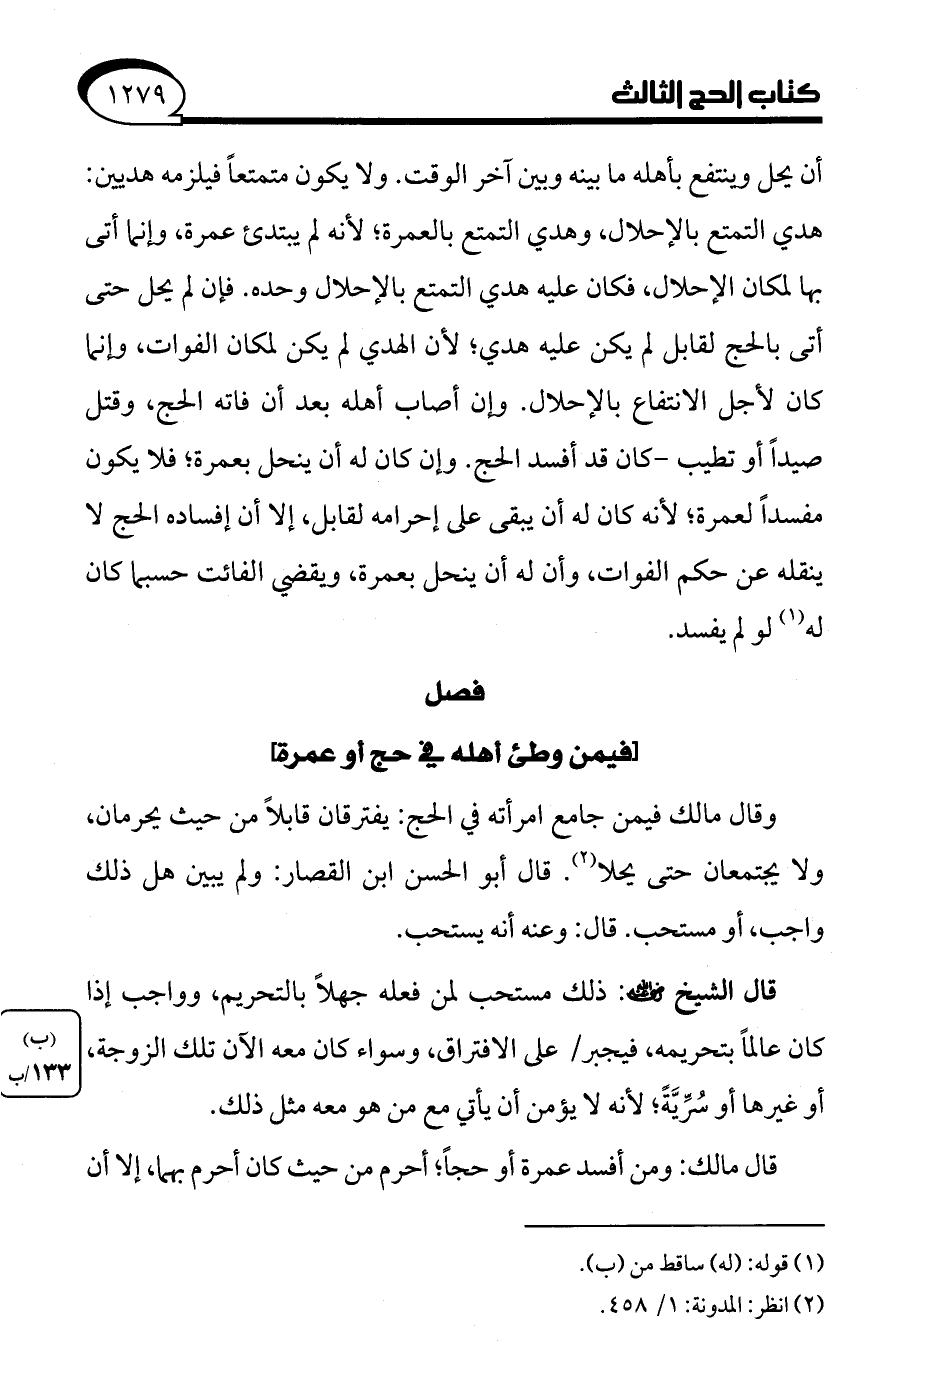 كتاب الحج الثالث
١٢٧٩
أن يحل وينتفع بأهله ما بينه وبين آخر الوقت. ولا يكون متمتعاً فيلزمه هديين:
هدي التمتع بالإحلال، وهدي التمتع بالعمرة؛ لأنه لم يبتدئ عمرة، وإنما أتى
بها لمكان الإحلال، فكان عليه هدي التمتع بالإحلال وحده. فإن لم يحل حتى
أتى بالحج لقابل لم يكن عليه هدي؛ لأن الهدي لم يكن لمكان الفوات، وإنما
كان لأجل الانتفاع بالإحلال. وإن أصاب أهله بعد أن فاته الحج، وقتل
صيداً أو تطيب -كان قد أفسد الحج. وإن كان له أن ينحل بعمرة؛ فلا يكون
مفسداً لعمرة؛ لأنه كان له أن يبقى على إحرامه لقابل، إلا أن إفساده الحج لا
ينقله عن حكم الفوات، وأن له أن ينحل بعمرة، ويقضي الفائت حسبما كان
له(١) لو لم يفسد.
فصل
[فيمن وطئ أهله في حج أو عمرة]
وقال مالك فيمن جامع امرأته في الحج: يفترقان قابلاً من حيث يحرمان،
ولا يجتمعان حتى يحلا(٢). قال أبو الحسن ابن القصار: ولم يبين هل ذلك
واجب، أو مستحب. قال: وعنه أنه يستحب.
قال الشيخ رحمه الله: ذلك مستحب لمن فعله جهلاً بالتحريم، وواجب إذا
كان عالماً بتحريمه، فيجبر/ على الافتراق، وسواء كان معه الآن تلك الزوجة،
(ب)
١٣٣/ب
أو غيرها أو سُرِّيَّةً؛ لأنه لا يؤمن أن يأتي مع من هو معه مثل ذلك.
قال مالك: ومن أفسد عمرة أو حجاً؛ أحرم من حيث كان أحرم بهما، إلا أن
(١) قوله: (له) ساقط من (ب).
(٢) انظر: المدونة: ١/ ٤٥٨.